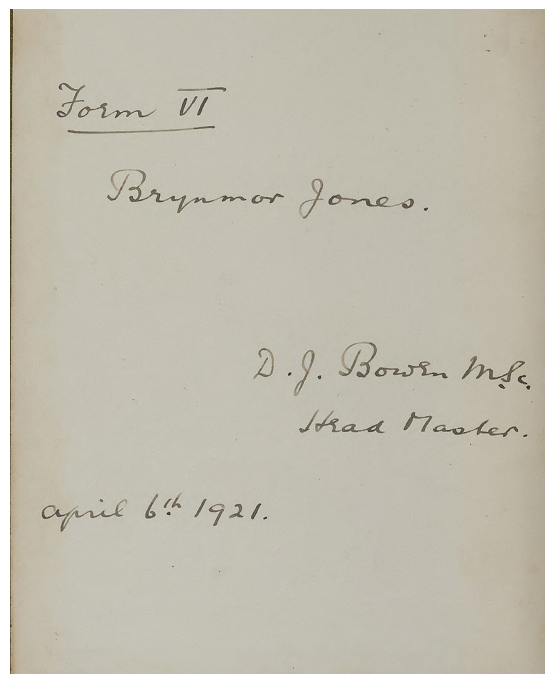 Form VI
Brynmor Jones.
D. J. Bowen M.Sc.
Head Master.
April 6th 1921.